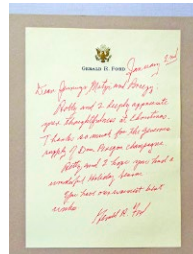 GERALD R. FORD
January 2nd
Dear George, and
Betty and I deeply appreciate
your thoughtfulness at Christmas.
Thanks so much for the generous
supply of Dom Perignon champagne.
Betty and I hope you had a
wonderful Holiday Season
You have our warmest best
wishes
Gerald R. Ford